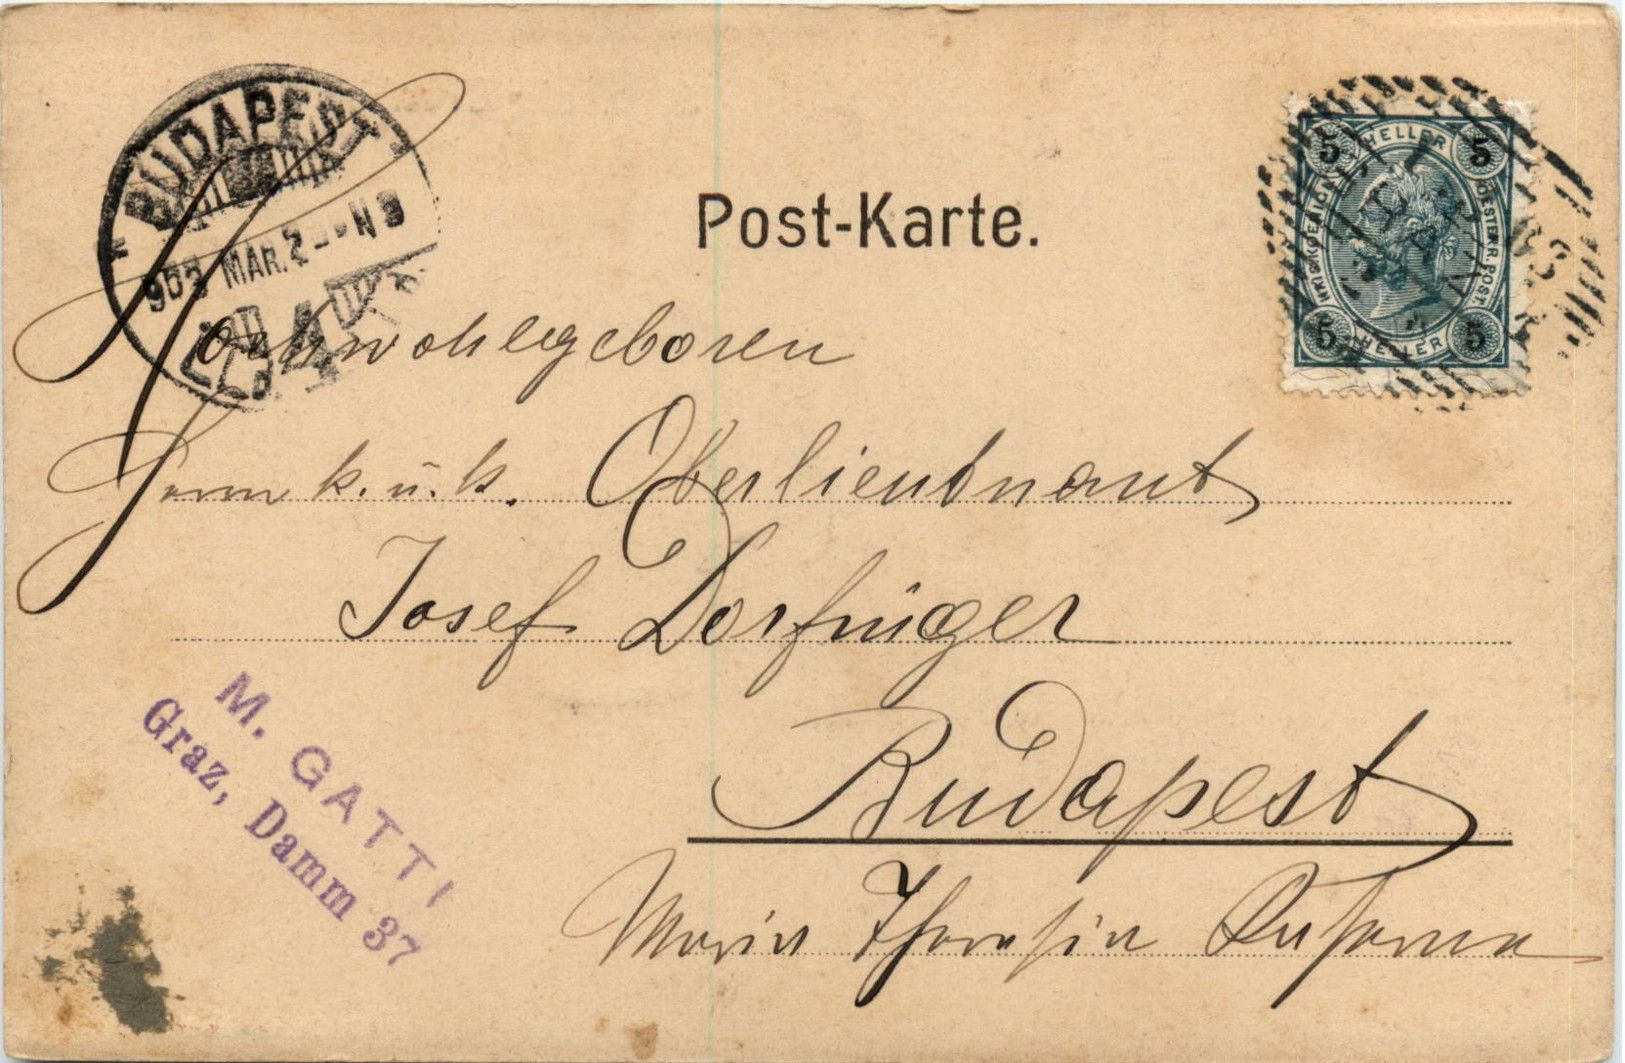 Post-Karte.
BUDAPEST
MAR. 2
5 HELLER 5
OESTERR. POST.
5 HELLER 5
Hochwohlgeboren
Herrn k. u. k. Oberlieutnant
Josef Dorfinger
Budapest
Maria Theresia Kaserne
M. GATTI
Graz, Damm 37